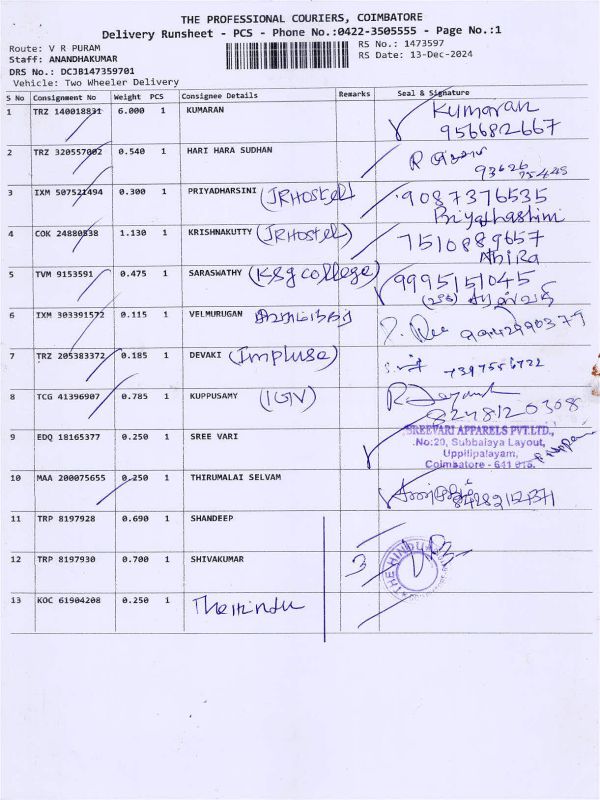 THE PROFESSIONAL COURIERS, COIMBATORE
Delivery Runsheet - PCS - Phone No.:0422-3505555 - Page No.:1
Route: V R PURAM
RS No.: 1473597
Staff: ANANDHAKUMAR
RS Date: 13-Dec-2024
DRS No.: DCJB147359701
Vehicle: Two Wheeler Delivery
S No Consignment No Weight PCS Consignee Details Remarks Seal & Signature
1 TRZ 140018831 6.000 1 KUMARAN Kumaran
9566826667
2 TRZ 320557002 0.540 1 HARI HARA SUDHAN
3 IXM 507521494 0.300 1 PRIYADHARSINI (JRHostel) 9087376535
Priyadhashini
4 COK 24880838 1.130 1 KRISHNAKUTTY (JRHostel) 7510889657
Abira
5 TVM 9153591 0.475 1 SARASWATHY (KSG college) 9995151045
6 IXM 303391572 0.115 1 VELMURUGAN
7 TRZ 205383372 0.185 1 DEVAKI (Impluse) 7397556722
8 TCG 41396907 0.785 1 KUPPUSAMY (IGV)
8248120308
9 EDQ 18165377 0.250 1 SREE VARI SREEVARI APPARELS PVT.LTD.,
No:20, Subbaiaya Layout,
Uppilipalayam,
Coimbatore - 641 015.
10 MAA 200075655 0.250 1 THIRUMALAI SELVAM
11 TRP 8197928 0.690 1 SHANDEEP
12 TRP 8197930 0.700 1 SHIVAKUMAR 3 THE HINDU
13 KOC 61904208 0.250 1 The Hindu